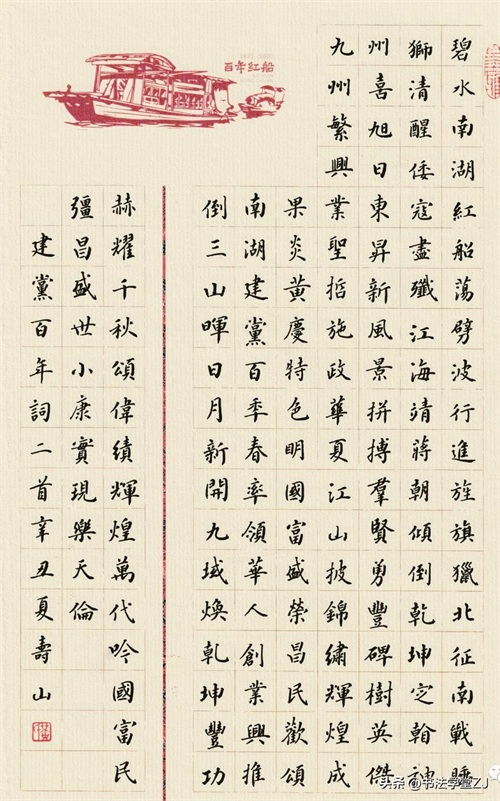 百年红船
碧水南湖紅船蕩劈波行進旌旗獵北征南戰睡
獅清醒倭寇盡殲江海靖蔣朝傾倒乾坤定翰神
州喜旭日東昇新風景拼搏羣賢勇豐碑樹英傑
九州繁興業聖哲施政華夏江山披錦繡輝煌成
果炎黃慶特色明國富盛榮昌民歡頌
南湖建黨百秊春率領華人創業興推
倒三山暉日月新開九域煥乾坤豐功
赫耀千秋頌偉績輝煌萬代吟國富民
彊昌盛世小康實現樂天倫
建黨百年詞二首辛丑夏壽山
头条@书法学堂ZJ